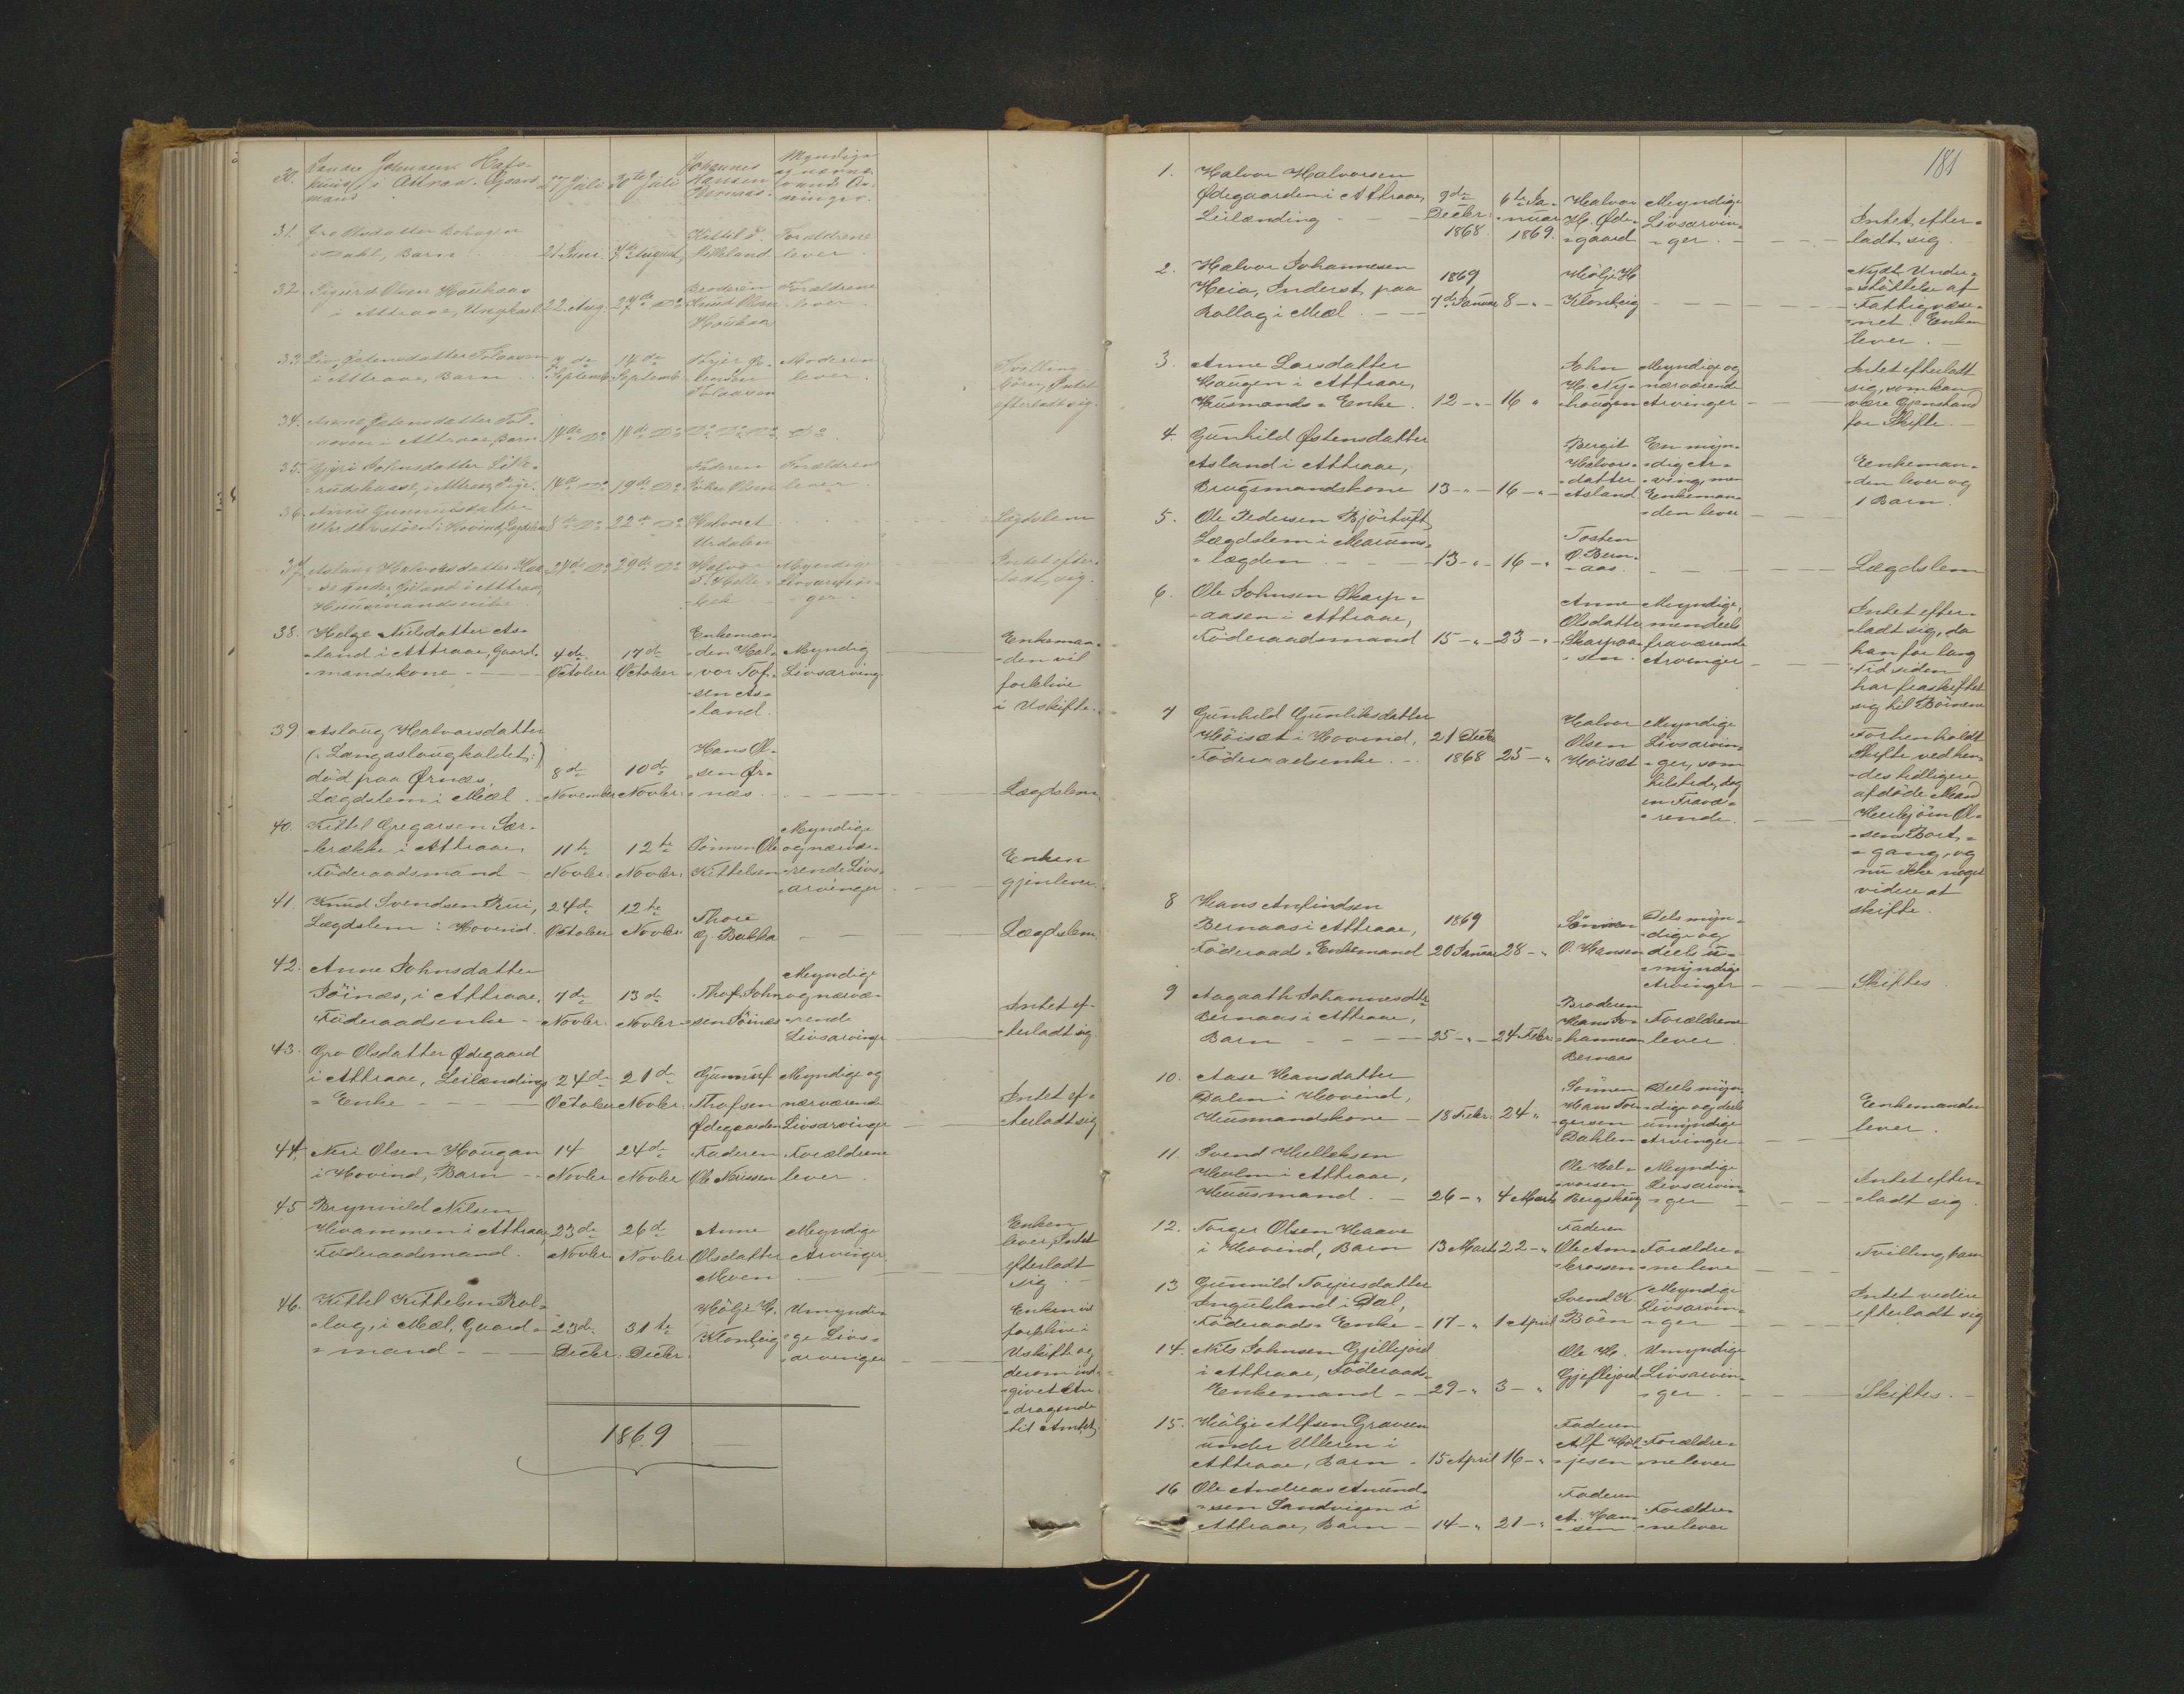 30. Sander Johnsen Hafs-
i Attraae, Gaard-
mand
27 Juli
30te Juli
Johannes
Hansen
Bernaas
Myndige
og nærvæ-
rende Ar-
vinger.
31. Gro Olsdatter Bohagen
i Dahl, Barn
21 Juni
7de August
Kittel P.
Lilleland
Forældrene
lever.
32. Sigurd Olsen Haukaas
i Attraae, Ungkarl
22. Aug.
27de Do
Broderen
Knud Olsen
Haukaas
Forældrene
lever
33 Liv Østensdatter Tolaaven
i Attraae, Barn
7de
Septemb.
14de
Septemb.
Moderen
lever.
Tvilling-
børn, Intet
efterladt sig.
34. Anne Østensdatter Tol-
aaven i Attraae, Barn
14de Do
14de Do
Do Do Do
Do
35. Gjyri Johnsdatter Litle-
i Attraae, Pige
14de Do
19de Do
Faderen
John Olsen
Forældrene
lever.
36. Anne Gunnulsdatter
i Hovind, Lægdslem
8de Do
22de Do
Halvor
Urdalen
Lægdslem
37 Aslaug Halvorsdatter Haa-
i Attraae,
Huusmandsenke
21de Do
29de Do
Halvor
Myndige
Livsarvin-
ger.
Intet efter-
ladt sig.
38. Helge Nielsdatter As-
land i Attraae, Gaard-
mandskone
4de
October
17de
October
Enkeman-
den Hal-
vor Tof-
sen As-
land.
Myndig
Livsarving
Enkeman-
den vil
forblive
i Uskifte.
39 Aslaug Halvorsdatter
(: Langaslaug kaldet :)
död paa Ørnæs,
Lægdslem i Mæl
8de
November
10de
Novber.
Hans Ol-
sen Ør-
næs.
Lægdslem
40. Kittel Gregarsen Sær-
brække i Attraae,
Föderaadsmand
11te
Novber.
12te
Novber.
Sönnen Ole
Kittelsen
Myndige
og nærvæ-
rende Livs-
arvinger
Enken
gjenlever.
41. Knud Svendsen Rui,
Lægdslem i Hovind.
24de
October
12te
Novber
Thore
G. Bakka
Lægdslem
42. Anne Johnsdatter
Söinæs, i Attraae.
Föderaadsenke
7de
Novber.
13de
Novber
Thof John-
sen Söinæs
Myndige
og nærvæ-
rende
Livsarvinger
Intet ef-
terladt sig
43. Gro Olsdatter Ødegaard
i Attraae, Leilændings
= Enke
24de
October
21de
Novber.
Gunnuf
Thofsen
Ødegaarden
Myndige og
nærværende
Livsarvinger
Intet ef-
terladt sig
44. Neri Olsen Haugan
i Hovind, Barn
14
Novber
24de
Novber
Faderen
Ole Nerissen
Forældrene
lever.
45 Brynnild Nilsen
Hvammen i Attraae
Föderaadsmand.
23de
Novber
26de
Novber
Anne
Olsdatter
Moen
Myndige
Arvinger.
Enken
lever, Intet
efterladt
sig
46. Kittel Kittelsen Rol-
lag, i Mæl, Gaard-
mand
23de
Decbr.
31te
Decbr.
Hölje H.
Klonteig
Umyndi-
ge Livs-
arvinger
Enken vil
forblive i
Uskifte og
derom ind-
givet An-
dragende
til Amtet.
1869
181
1. Halvor Halvorsen
Ødegaarden i Attraae,
Leilænding
9de
Decbr.
1868.
6te Ja-
nuar
1869.
Halvor
H. Øde-
gaard
Myndige
Livsarvin-
ger.
Intet efter-
ladt sig.
2. Halvor Johannesen
Heia, Inderst paa
Rollag i Mæl
1869
7de Januar
8 - "
Hölje H
Klonteig
Nydt Under-
støttelse af
Fattigvæse-
net. Enken
lever.
3. Anne Larsdatter
Haugen i Attraae,
Husmands = Enke.
12 - "
16 "
John
H. Ny-
haugen
Myndige og
nærværende
Arvinger
Intet efterladt
sig, som kan
være Gjenstand
for Skifte.
4. Gunhild Østensdatter
Asland i Attraae,
Brugsmandskone
13 - "
16 - "
Bergit
Halvors-
datter
Asland
En myn-
dig Ar-
ving, men
Enkeman-
den lever
Enkeman-
den lever og
1 Barn.
5. Ole Pedersen Björtuft,
Lægdslem i Marums-
lægden
13 - "
16 - "
Tosten
O. Bern-
aas.
Lægdslem
6. Ole Johnsen Skarp-
aasen i Attraae,
Föderaadsmand
15 - "
23 - "
Anne
Olsdatter
Skarpaa-
sen.
Myndige,
men deels
fraværende
Arvinger
Intet efter-
ladt sig, da
han for lang
Tid siden
har fraskiftet
sig til Börnene
7 Gunhild Gunliksdatter
Höisæt i Hovind,
Föderaadsenke
21 Decbr
1868
25 - "
Halvor
Olsen
Höisæt
Myndige
Livsarvin-
ger, som
tilstede, dog
en Fravæ-
rende.
Forhen holdt
Skifte ved hen-
des tidligere
afdöde Mand
Herbjörn Ol-
sens Bort-
gang, og
nu ikke noget
videre at
skifte.
8 Hans Anfindsen
Bernaas i Attraae,
Föderaads = Enkemand
1869
20 Januar
28 - "
Sönnen
O. Hansen
Dels myn-
dige og
deels u-
myndige
Arvinger
Skiftes.
9 Aagaath Johannesdtr
Bernaas i Attraae,
Barn
25 - "
24 Febr.
Broderen
Hans Jo-
hannesen
Bernaas
Forældrene
lever.
10. Aase Hansdatter
Dalen i Hovind,
Huusmandskone
18 Febr.
24 "
Sönnen
Hans Tor-
gersen
Dahlen
Deels myn-
dige og deels
umyndige
Arvinger
Enkemanden
lever.
11. Svend Hülleksen
Holm i Attraae,
Huusmand.
26 - "
4 Marts
Ole Hal-
vorsen
Bergskaug
Myndige
Livsarvin-
ger
Intet efter-
ladt sig.
12. Torger Olsen Haave
i Hovind, Barn
13 Marts
22 - "
Faderen
Ole Am-
brossen
Forældre-
ne leve
Tvilling barn
13 Gunnild Torjersdatter
Ingulsland i Dal,
Föderaads = Enke
17 - "
1 April
Svend K.
Böen
Myndige
Livsarvin-
ger
Intet videre
efterladt sig
14. Nils Johnsen Gjellejord
i Attraae, Föderaads-
Enkemand
29 - "
3 - "
Ole H.
Gjeflejord
Umyndige
Livsarvin-
ger
Skiftes.
15. Hölje Alfsen Graven
under Ulleren i
Attraae, Barn
15 April
16 - "
Faderen
Alf Höl-
jesen
Forældre-
ne lever
16 Ole Andreas Amund-
sen Sandvigen i
Attraae, Barn
14 - "
21 - "
Faderen
A. Han-
sen
Forældre-
ne lever